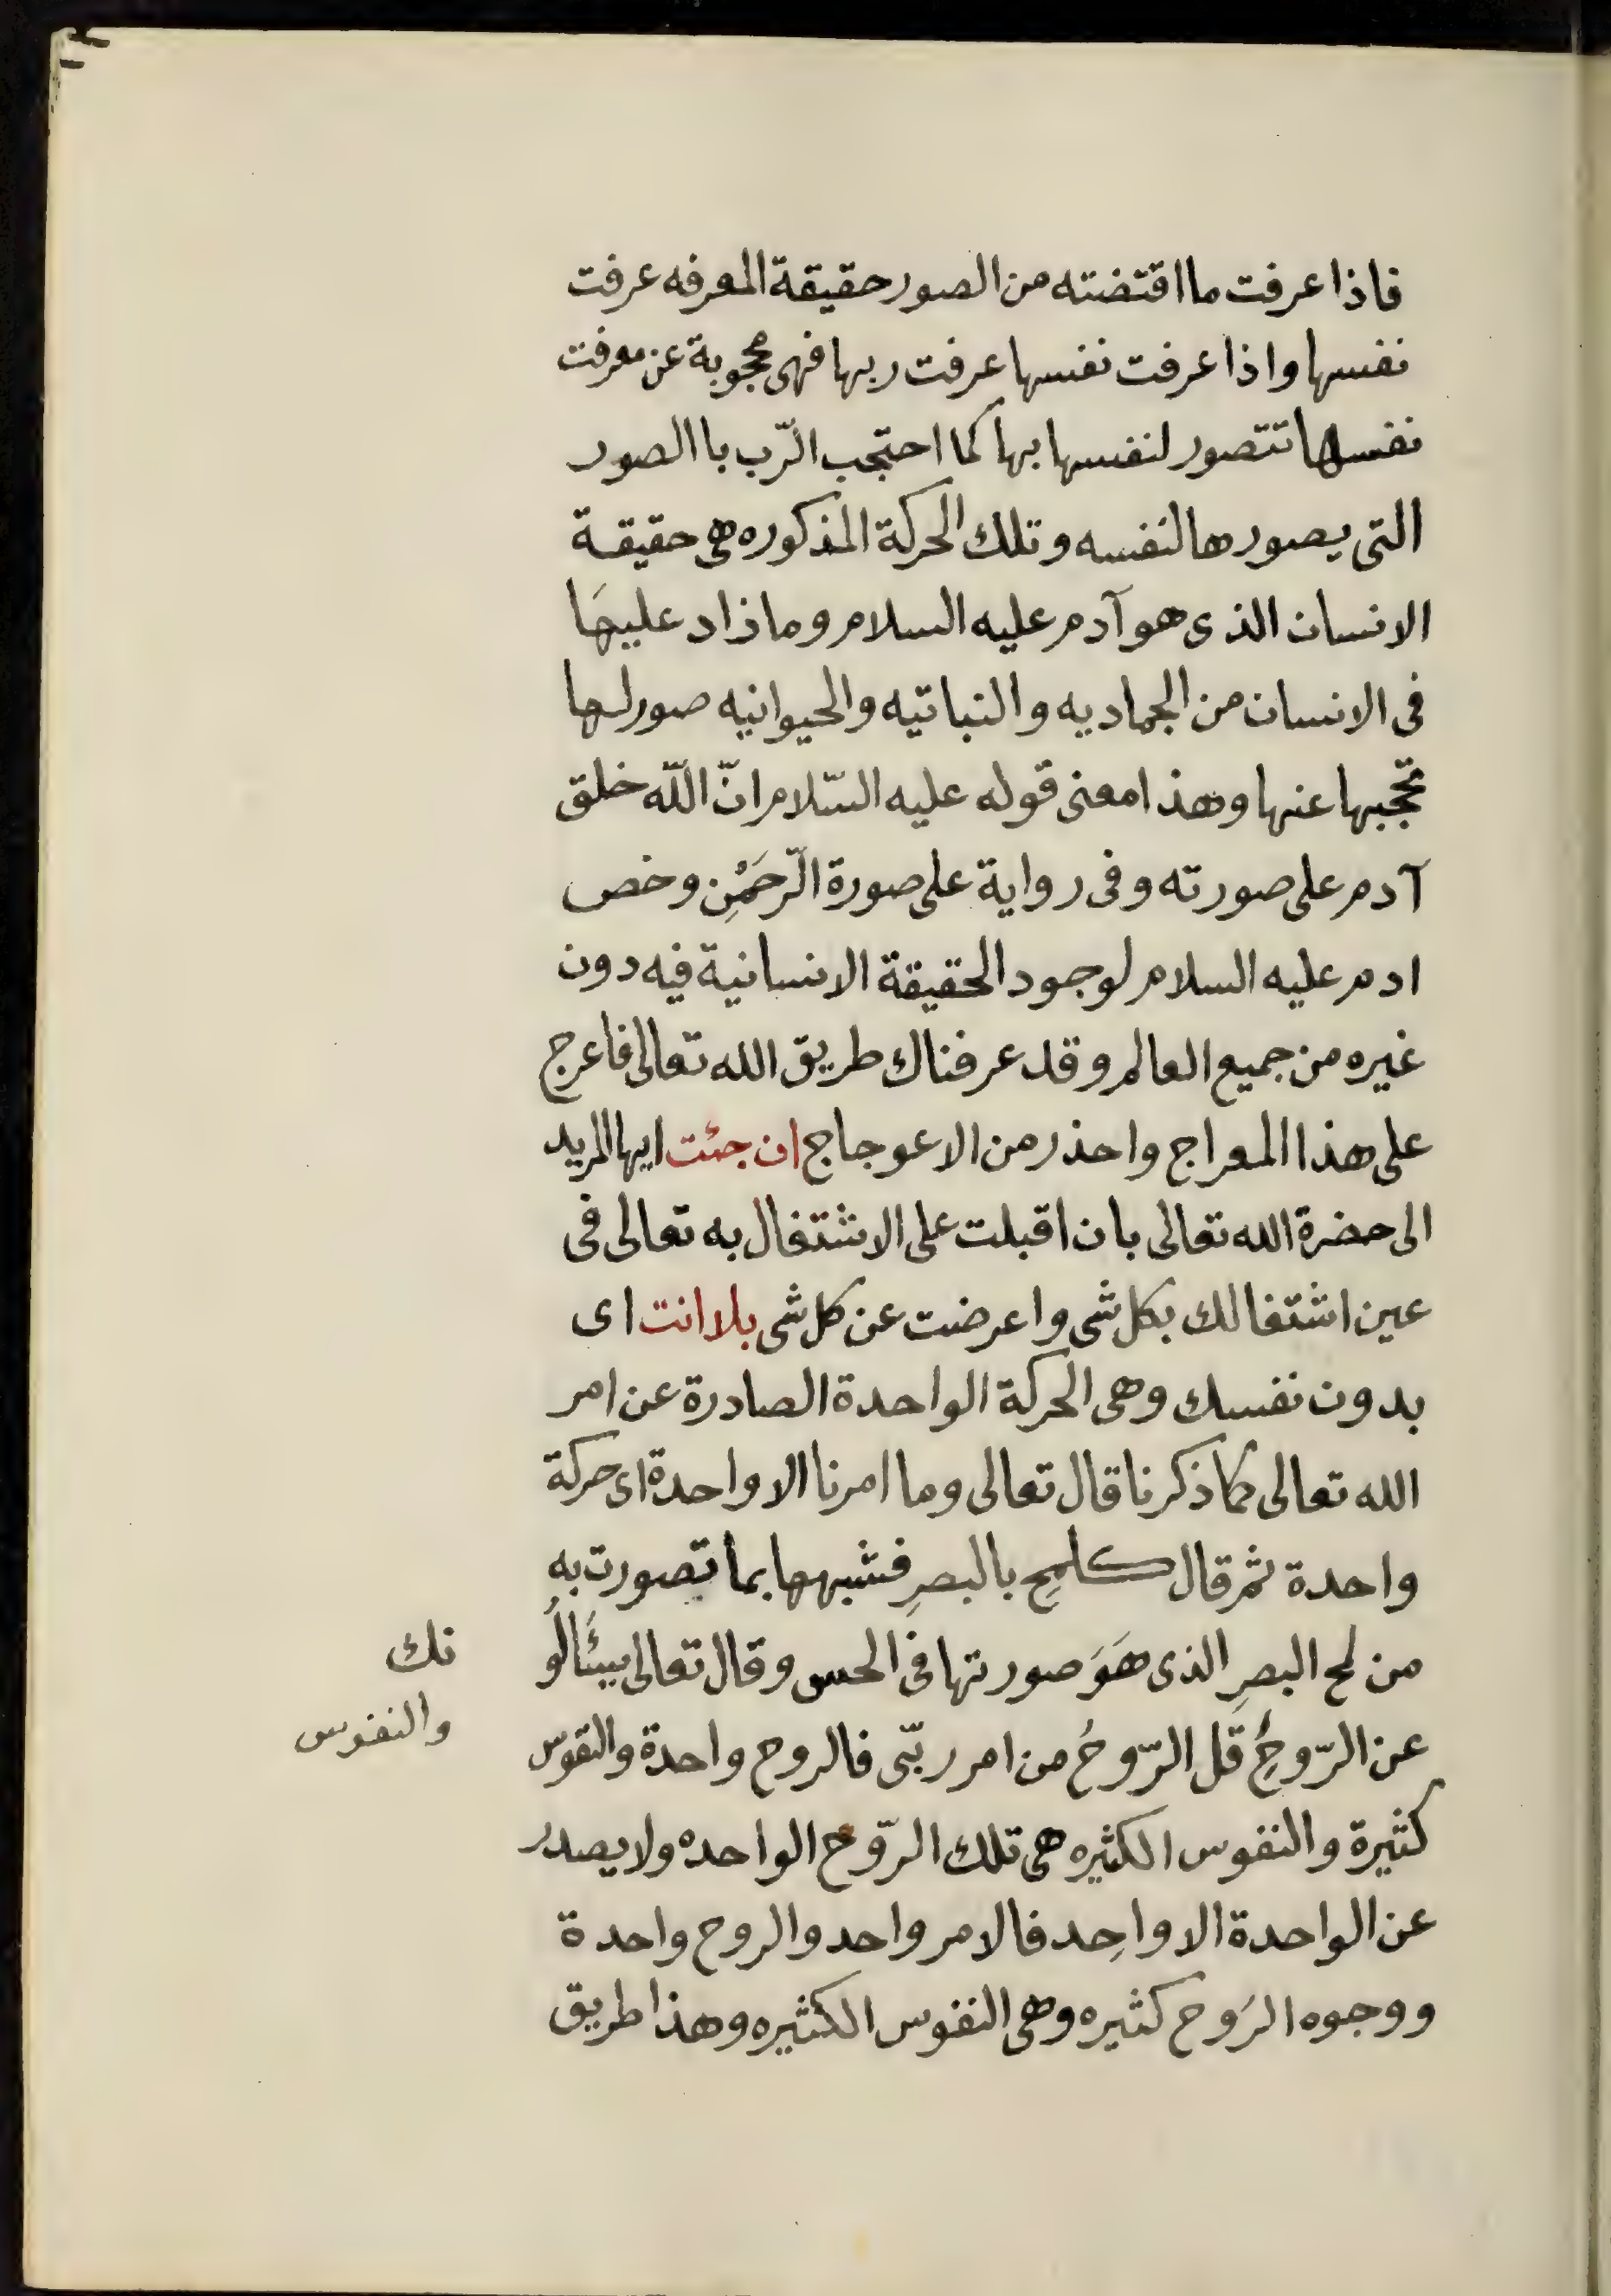 فاذا عرفت ما اقتضته من الصور حقيقة المعرفه عرفت
نفسها واذا عرفت نفسها عرفت ربها فهى محجوبة عن معرفت
نفسها تتصور لنفسها بها كما احتجب الرّب با الصور
التى يصورها لنفسه وتلك الحركة المذكوره هى حقيقة
الانسان الذى هو آدم عليه السلام وما ذاد عليهَا
فى الانسان من الجماديه والنباتيه والحيوانيه صور لها
تحّجبها عنها وهذا معنى قوله عليه السّلام انّ اللّه خلق
آدم على صورته وفى رواية على صورة الرّحَمْنِ وخص
ادم عليه السلام لوجود الحقيقة الانسانية فيه دون
غيره من جميع العالم وقد عرفناك طريق الله تعالى فاعرج
على هذا المعراج واحذر من الاعوجاج ان جئت ايها المريد
الى حضرة الله تعالى بان اقبلت على الاشتغال به تعالى فى
عين اشتغالك بكل شى واعرضت عن كل شى بلا انت اى
بدون نفسك وهى الحركة الواحدة الصادرة عن امر
الله تعالى كما ذكرنا قال تعالى وما امرنا الا واحدة اى حركة
واحدة ثم قال كلمحٍ بالبصرِ فشبهها بما تصورت به
من لمح البصرِ الذى هَوَ صورتها فى الحس وقال تعالى يسَٔالُو
نك
عن الرّوحُِ قل الرّوحُ من امر ربّى فالروح واحدة والنقوس
والنفوس
كثيرة والنفوس الكثيره هى تلك الرّوح الواحده ولا يصدر
عن الواحدة الا واحِد فالامر واحد والروح واحدة
ووجوه الرَوح كثيره وهى النفوس الكثيره وهذا طريق